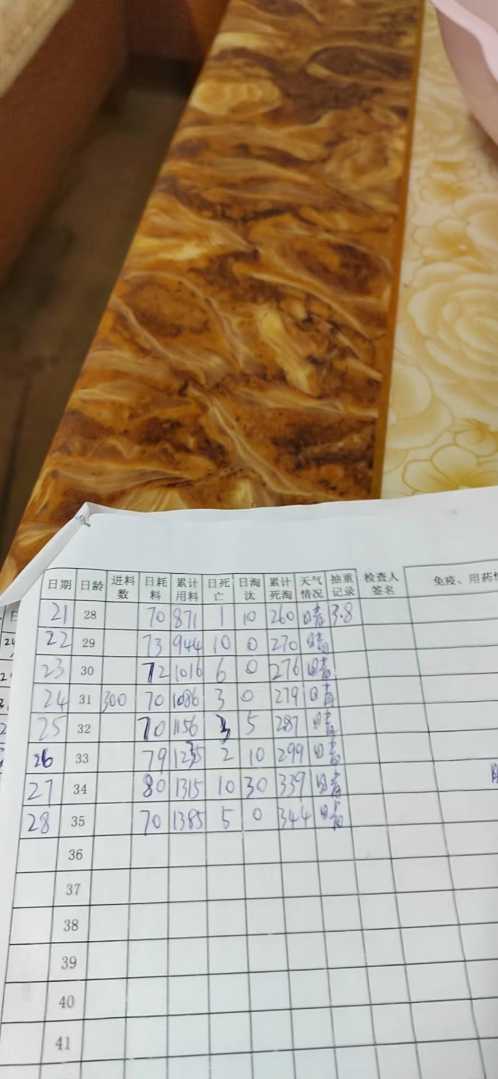 日期 日龄 进料数 日耗料 累计用料 日死亡 日淘汰 累计死淘 天气情况 抽重记录 检查人签名 免疫、用药情
21 28 70 871 1 10 260 晴 3.8
22 29 73 944 10 0 270 晴
23 30 72 1016 6 0 276 晴
24 31 300 70 1086 3 0 279 晴
25 32 70 1156 3 5 287 晴
26 33 79 1235 2 10 299 晴
27 34 80 1315 10 30 339 晴
28 35 70 1385 5 0 344 晴
36
37
38
39
40
41